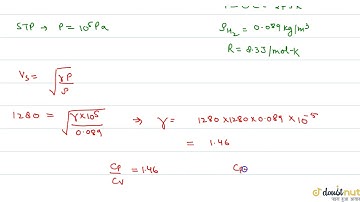 STP → P = 10⁵ Pa
ρH₂ = 0.089 kg/m³
R = 8.33/mol-K
Vs = √(γP/ρ)
1280 = √(γ×10⁵/0.089) ⇒ γ = 1280×1280×0.089×10⁻⁵
= 1.46
Cp/Cv = 1.46 Cp
doubtnut